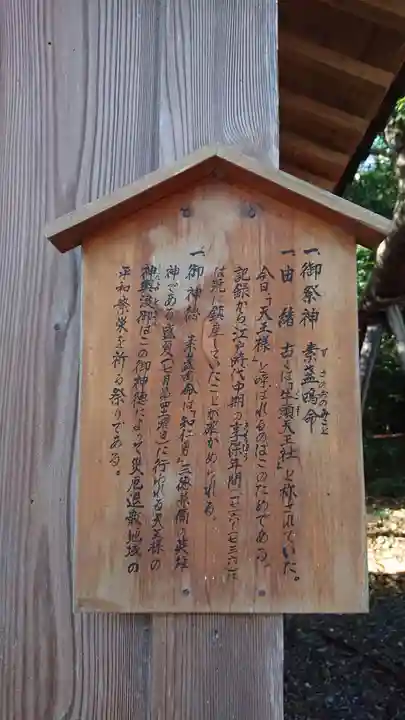 一、御祭神 素盞嗚命
すさのおのみこと
一、由緒 古くは「牛頭天王社」と称されていた。
今日「天王様」と呼ばれるのはこのためである。
記録から江戸時代中期の享保年間(一七一六〜一七三六)に
は既に鎮座していたことが確かめられる。
一、御神徳 素盞嗚命は、「知仁勇」三徳兼備の英雄
神である。盛夏(七月第四土曜日)に行われる天王様の
神輿渡御はこの御神徳によって災厄退散地域の
平和繁栄を祈る祭りである。